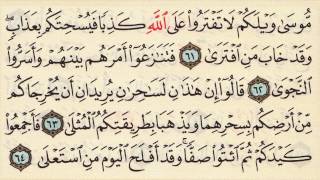 مُوسَىٰ وَيْلَكُمْ لَا تَفْتَرُوا۟ عَلَى ٱللَّهِ كَذِبًا فَيُسْحِتَكُم بِعَذَابٍ ۖ
وَقَدْ خَابَ مَنِ ٱفْتَرَىٰ ٦١ فَتَنَـٰزَعُوٓا۟ أَمْرَهُم بَيْنَهُمْ وَأَسَرُّوا۟
ٱلنَّجْوَىٰ ٦٢ قَالُوٓا۟ إِنْ هَـٰذَٰنِ لَسَـٰحِرَٰنِ يُرِيدَانِ أَن يُخْرِجَاكُم
مِّنْ أَرْضِكُم بِسِحْرِهِمَا وَيَذْهَبَا بِطَرِيقَتِكُمُ ٱلْمُثْلَىٰ ٦٣ فَأَجْمِعُوا۟
كَيْدَكُمْ ثُمَّ ٱئْتُوا۟ صَفًّا ۚ وَقَدْ أَفْلَحَ ٱلْيَوْمَ مَنِ ٱسْتَعْلَىٰ ٦٤